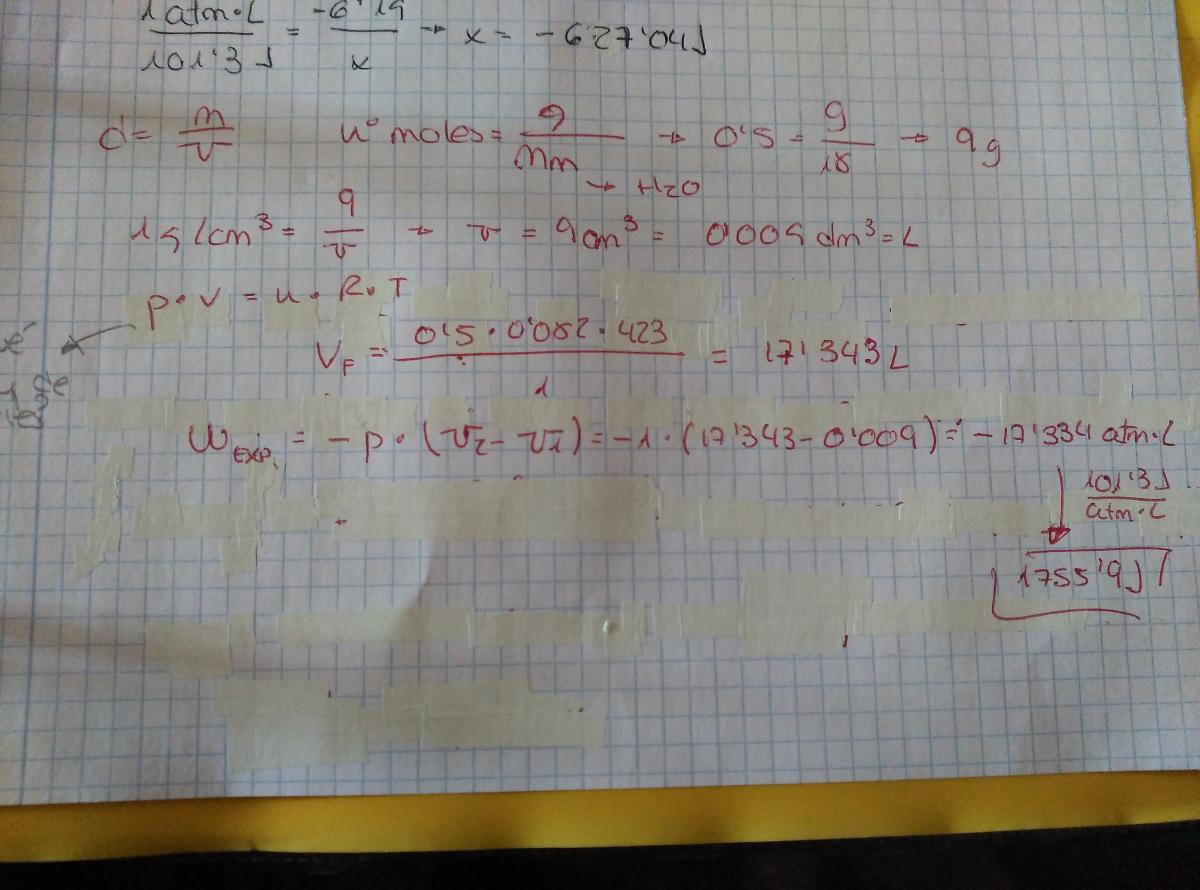 1 atm·L / 101'3 J = -6'19 / x → x = -627'04 J
d = m / v   nº moles = g / Mm → H2O → 0'5 = g / 18 → 9 g
1 g/cm³ = 9 / v → v = 9 cm³ = 0'009 dm³ = L
p·v = n·R·T
V_F = 0'5·0'082·423 / 1 = 17'343 L
W_EXP. = -p·(v₂ - v₁) = -1·(17'343 - 0'009) = -17'334 atm·L
101'3 J / atm·L
1755'9 J